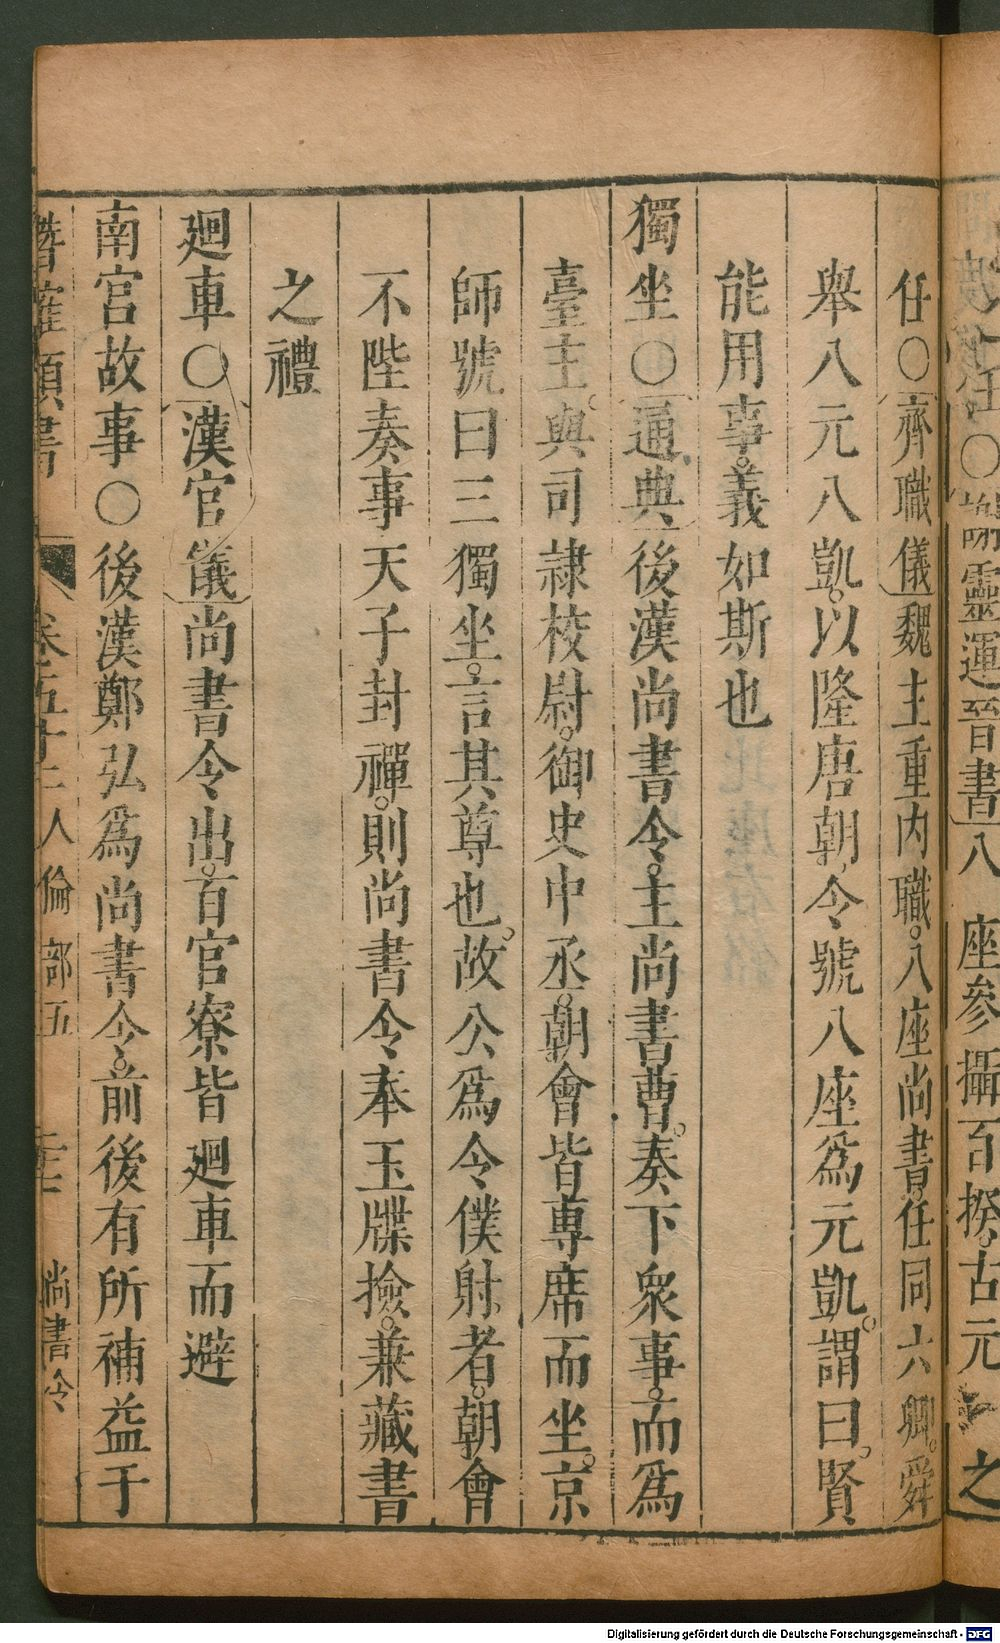 任〇齊職儀魏主重內職。八座尚書任同六卿。舜
舉八元八凱。以隆唐朝。今號八座爲元凱。謂曰。賢
能用事。義如斯也
獨坐〇通典後漢尚書令。主尚書曹。奏下衆事。而爲
臺主。與司隷校尉。御史中丞。朝會皆專席而坐。京
師號曰三獨坐。言其尊也。故公爲令僕射者。朝會
不陛奏事天子封禪。則尚書令奉玉牒撿。兼藏書
之禮
廻車〇漢官儀尚書令出。百官寮皆廻車而避
南宮故事〇後漢鄭弘爲尚書令。前後有所補益于
類書 卷五十二人倫部五 尚書令
〇謝靈運晉書八座參攝百揆。古元之
Digitalisierung gefördert durch die Deutsche Forschungsgemeinschaft - DFG